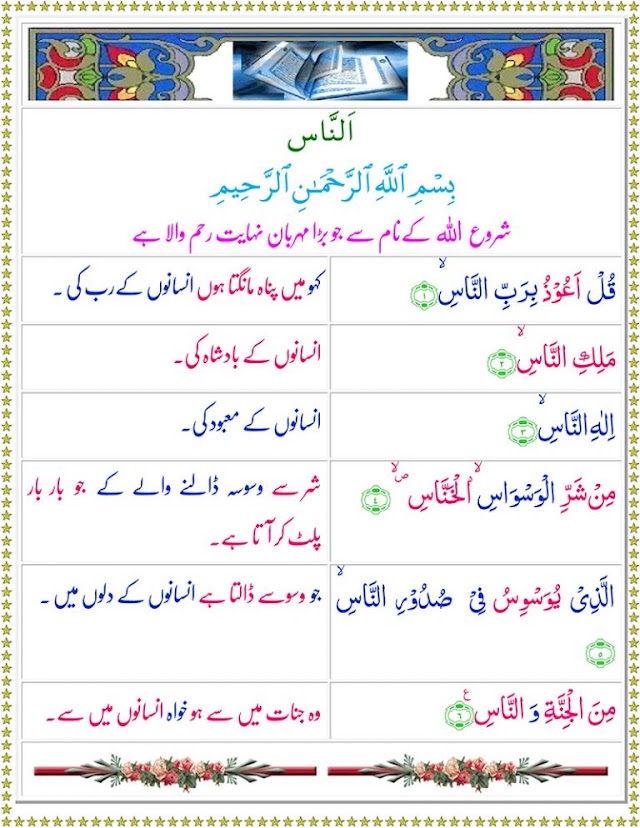 اَلنَّاس
بِسْمِ ٱللَّهِ ٱلرَّحْمَـٰنِ ٱلرَّحِيمِ
شروع اللہ کے نام سے جو بڑا مہربان نہایت رحم والا ہے
قُلْ اَعُوْذُ بِرَبِّ النَّاسِۙ ۝۱
کہو میں پناہ مانگتا ہوں انسانوں کے رب کی ۔
مَلِكِ النَّاسِۙ ۝۲
انسانوں کے بادشاہ کی۔
اِلٰهِ النَّاسِۙ ۝۳
انسانوں کے معبود کی۔
مِنْ شَرِّ الْوَسْوَاسِ ۙ الْخَنَّاسِ ۪ۙ ۝۴
شر سے وسوسہ ڈالنے والے کے جو بار بار
پلٹ کر آتا ہے۔
الَّذِیْ یُوَسْوِسُ فِیْ صُدُوْرِ النَّاسِۙ
۝۵
جو وسوسے ڈالتا ہے انسانوں کے دلوں میں ۔
مِنَ الْجِنَّةِ وَ النَّاسِ ۧ ۝۶
وہ جنات میں سے ہو خواہ انسانوں میں سے۔